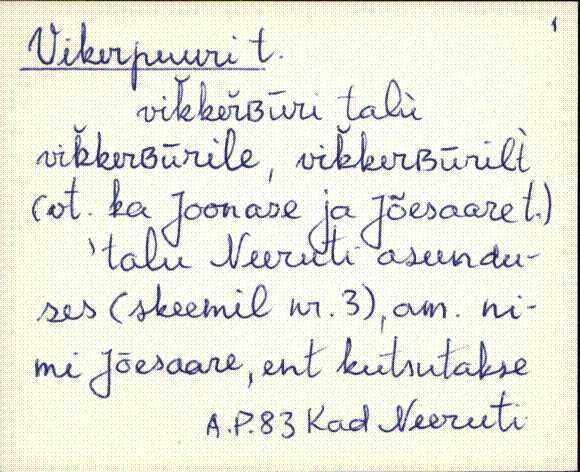 1
Vikerpuuri t.
vik̆keřʙūri talù
vik̆kerʙūrile, vik̆kerʙūrilt̀
(vt. ka Joonase ja Jõesaare t.)
'talu Neeruti asundu-
ses (skeemil nr. 3), am. ni-
mi Jõesaare, ent kutsutakse
A.P.83 Kad Neeruti